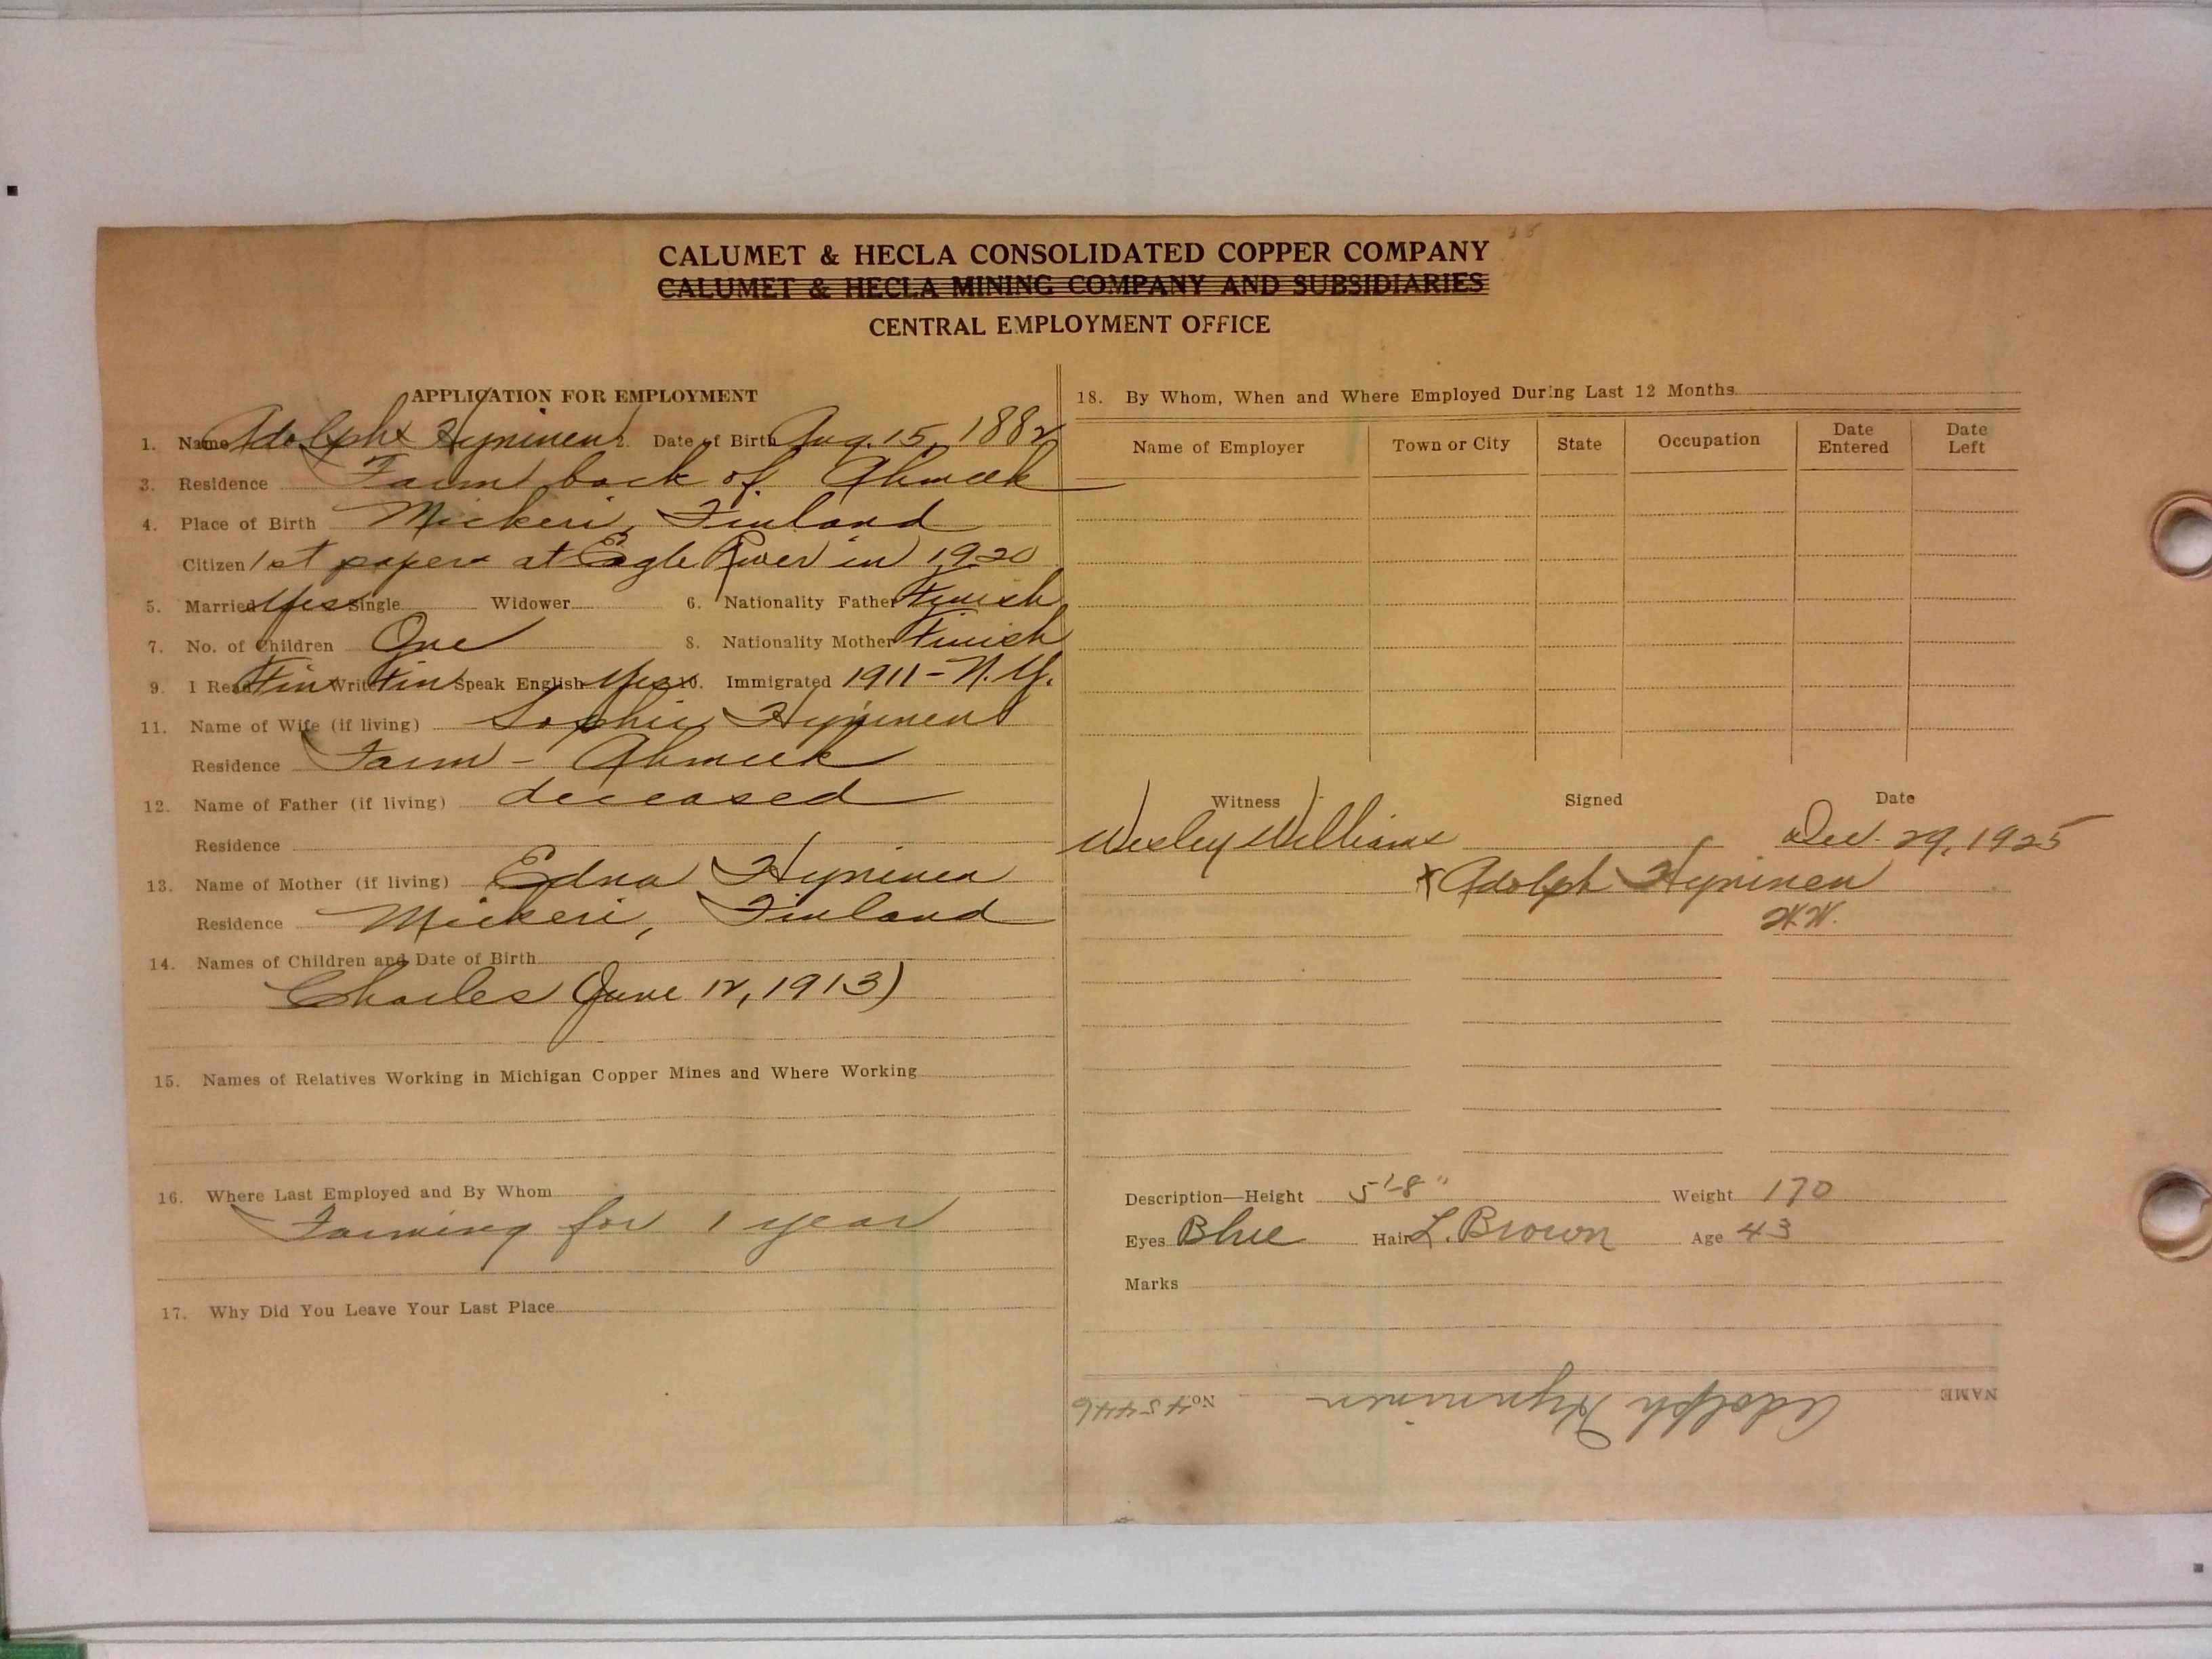 CALUMET & HECLA CONSOLIDATED COPPER COMPANY
CALUMET & HECLA MINING COMPANY AND SUBSIDIARIES
CENTRAL EMPLOYMENT OFFICE
APPLICATION FOR EMPLOYMENT
1. Name Adolph Hyninen 2. Date of Birth Aug. 15, 1882
3. Residence Farm back of Ahmeek
4. Place of Birth Mickeri, Finland
Citizen 1st papers at Eagle River in 1920
5. Married Yes Single Widower 6. Nationality Father Finish
7. No. of Children One 8. Nationality Mother Finish
9. I Read Fin Write Fin Speak English Yes 10. Immigrated 1911 - N.Y.
11. Name of Wife (if living) Sophie Hyninen
Residence Farm - Ahmeek
12. Name of Father (if living) deceased
Residence
13. Name of Mother (if living) Edna Hyninen
Residence Mickeri, Finland
14. Names of Children and Date of Birth
Charles (June 12, 1913)
15. Names of Relatives Working in Michigan Copper Mines and Where Working
16. Where Last Employed and By Whom
Farming for 1 year
17. Why Did You Leave Your Last Place
18. By Whom, When and Where Employed During Last 12 Months
Name of Employer Town or City State Occupation Date Entered Date Left
Witness Signed Date
Wesley Williams Dec. 29, 1925
x Adolph Hyninen
W.W.
Description—Height 5'-8" Weight 170
Eyes Blue Hair L. Brown Age 43
Marks
NAME Adolph Hynninen No. 45446